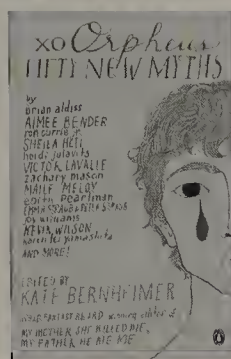 xo Orpheus
FIFTY NEW MYTHS
by
brian aldiss
AIMEE BENDER
ron currie jr.
SHEILA HETI
heidi julavits
VICTOR LAVALLE
zachary mason
MAILE MELOY
edith pearlman
EMMA STRAUB & PETER STRAUB
joy williams
KEVIN WILSON
karen tei yamashita
AND MORE!
EDITED BY
KATE BERNHEIMER
award winning editor of
MY MOTHER SHE KILLED ME,
MY FATHER HE ATE ME